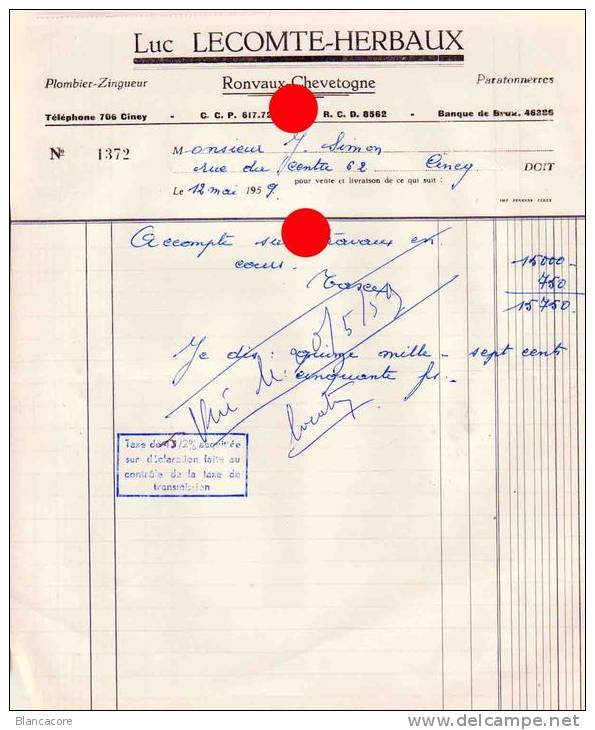 Luc LECOMTE-HERBAUX
Plombier-Zingueur Ronvaux-Chevetogne Paratonnerres
Téléphone 706 Ciney - C. C. P. 617.72 R. C. D. 8562 - Banque de Brux. 46386
No 1372 Monsieur J. Simon
rue du Centre 62 Ciney DOIT
pour vente et livraison de ce qui suit :
Le 12 mai 1959.
Accompte su travaux en
cours. 15000 -
Taxe 750
15750
Je dis : quinze mille - sept cent
cinquante fr. -
le 5/59
Taxe de acquittée
sur déclaration faite au
contrôle de la taxe de
transmission
Blancacore
www.delcampe.net